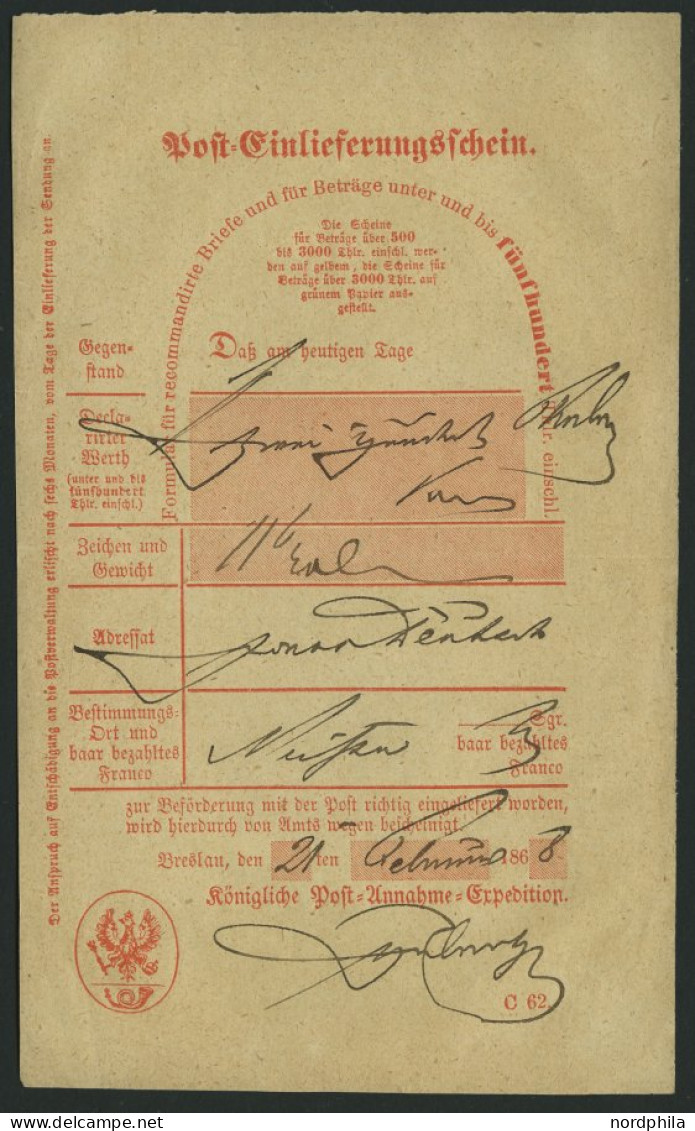 Post=Einlieferungsschein.
Formular für recommandirte Briefe und für Beträge unter und bis fünfhundert Thlr. einschl.
Die Scheine
für Beträge über 500
bis 3000 Thlr. einschl. wer=
den auf gelbem, die Scheine für
Beträge über 3000 Thlr. auf
grünem Papier aus=
gestellt.
Gegen=
stand
Daß am heutigen Tage
Decla=
rirter
Werth
(unter und bis
fünfhundert
Thlr. einschl.)
Zeichen und
Gewicht
Adressat
Bestimmungs=
Ort und
baar bezahltes
Franco
3 Sgr.
baar bezahltes
Franco
zur Beförderung mit der Post richtig eingeliefert worden,
wird hierdurch von Amts wegen bescheinigt.
Breslau, den 21 ten Februar 1868
Königliche Post=Annahme=Expedition.
C 62.
Der Anspruch auf Entschädigung an die Postverwaltung erlischt nach sechs Monaten, vom Tage der Einlieferung der Sendung an.
nordphila